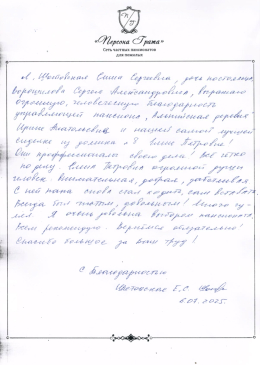 «Персона Грата»
Сеть частных пансионатов
для пожилых
Я, Щеговская Сергеевна, дочь постояльца,
Ворошилова Сергея Александровича, выражаю
огромную, человеческую благодарность
управляющей пансиона, Альпийская деревня
Ирине Анатольевне и нашей самой лучшей
сиделке из домика № 8 Елене Петровне!
Они профессионалы своего дела! Всё четко
по делу. Елена Петровна огромной души
человек. Внимательная, добрая, заботливая
С ней папа снова стал ходить, сам
Всегда был чистым, довольным! Много гу-
лял. Я очень довольна выбором пансионата.
Всем рекомендую. Вернёмся обязательно!
Спасибо большое за Ваш труд!
С Благодарностью
Е.С
2025.